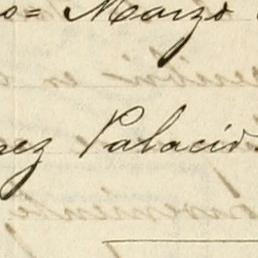 o= Marzo
ez Palacio.